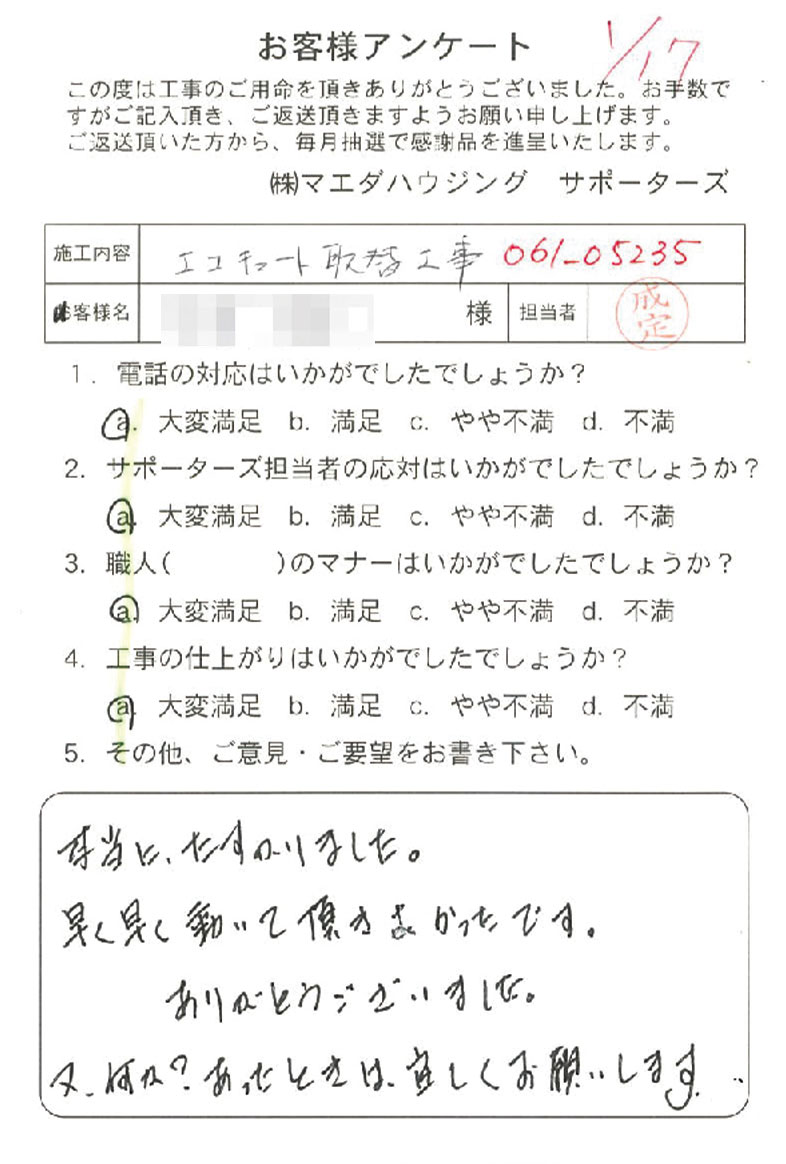 お客様アンケート
1/17
この度は工事のご用命を頂きありがとうございました。お手数で
すがご記入頂き、ご返送頂きますようお願い申し上げます。
ご返送頂いた方から、毎月抽選で感謝品を進呈いたします。
㈱マエダハウジング　サポーターズ
施工内容 エコキュート取替工事 061-05235
お客様名 様 担当者 成定
1. 電話の対応はいかがでしたでしょうか？
a. 大変満足 b. 満足 c. やや不満 d. 不満
2. サポーターズ担当者の応対はいかがでしたでしょうか？
a. 大変満足 b. 満足 c. やや不満 d. 不満
3. 職人( )のマナーはいかがでしたでしょうか？
a. 大変満足 b. 満足 c. やや不満 d. 不満
4. 工事の仕上がりはいかがでしたでしょうか？
a. 大変満足 b. 満足 c. やや不満 d. 不満
5. その他、ご意見・ご要望をお書き下さい。
本当に、たすかりました。
早く早く動いて頂きよかったです。
ありがとうございました。
又、何か？あったときは、宜しくお願いします。